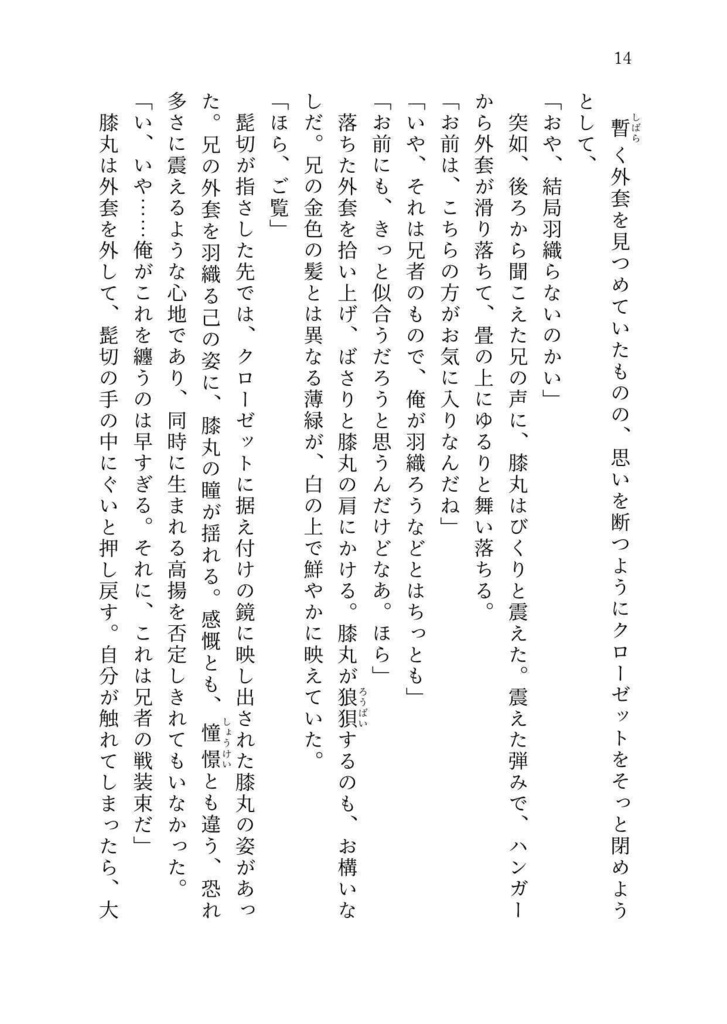 14
暫く外套を見つめていたものの、思いを断つようにクローゼットをそっと閉めよう
しばら
として、
「おや、結局羽織らないのかい」
突如、後ろから聞こえた兄の声に、膝丸はびくりと震えた。震えた弾みで、ハンガー
から外套が滑り落ちて、畳の上にゆるりと舞い落ちる。
「お前は、こちらの方がお気に入りなんだね」
「いや、それは兄者のもので、俺が羽織ろうなどとはちっとも」
「お前にも、きっと似合うだろうと思うんだけどなあ。ほら」
落ちた外套を拾い上げ、ばさりと膝丸の肩にかける。膝丸が狼狽するのも、お構いな
ろうばい
しだ。兄の金色の髪とは異なる薄緑が、白の上で鮮やかに映えていた。
「ほら、ご覧」
髭切が指さした先では、クローゼットに据え付けの鏡に映し出された膝丸の姿があっ
た。兄の外套を羽織る己の姿に、膝丸の瞳が揺れる。感慨とも、憧憬とも違う、恐れ
しょうけい
多さに震えるような心地であり、同時に生まれる高揚を否定しきれてもいなかった。
「い、いや……俺がこれを纏うのは早すぎる。それに、これは兄者の戦装束だ」
膝丸は外套を外して、髭切の手の中にぐいと押し戻す。自分が触れてしまったら、大